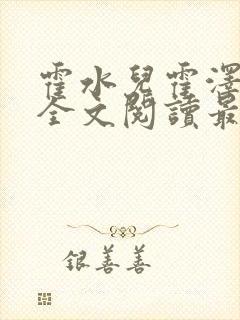 霍水兒霍澤
全文閱讀最
银善善